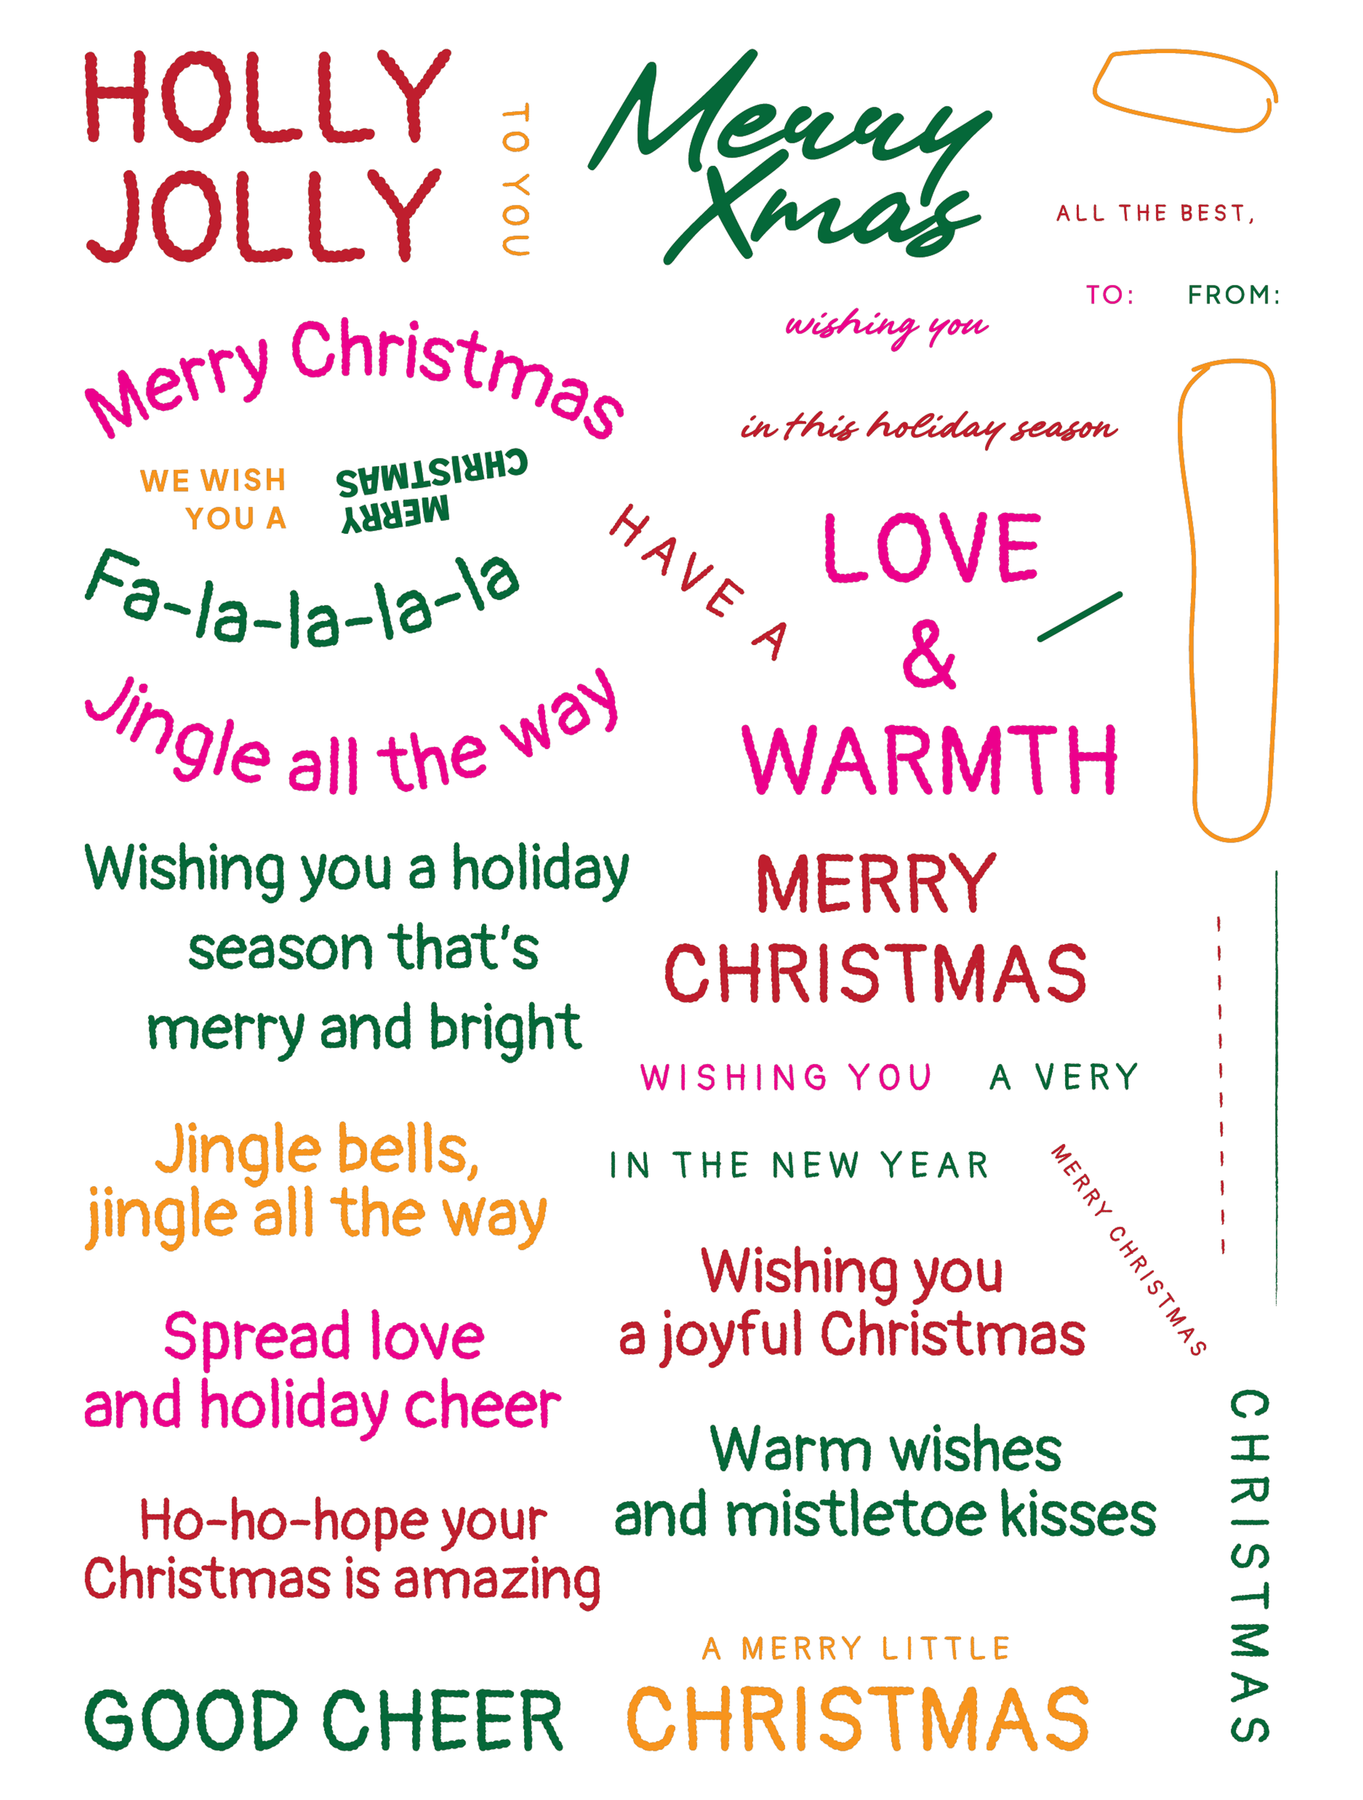 HOLLY
JOLLY
TO YOU
Merry
Xmas
ALL THE BEST,
TO:
FROM:
wishing you
Merry Christmas
in this holiday season
WE WISH
YOU A
MERRY
CHRISTMAS
HAVE A
LOVE
&
WARMTH
Fa-la-la-la-la
Jingle all the way
Wishing you a holiday
season that's
merry and bright
MERRY
CHRISTMAS
WISHING YOU
A VERY
IN THE NEW YEAR
MERRY CHRISTMAS
Jingle bells,
jingle all the way
Wishing you
a joyful Christmas
Spread love
and holiday cheer
Warm wishes
and mistletoe kisses
CHRISTMAS
Ho-ho-hope your
Christmas is amazing
A MERRY LITTLE
CHRISTMAS
GOOD CHEER